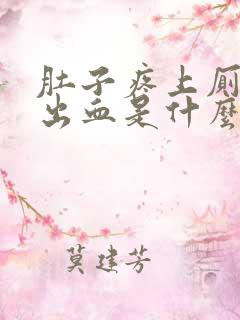 肚子疼上厕
出血是什麽
莫建芳